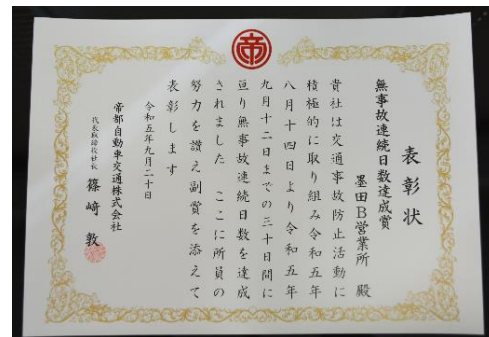 帝
表彰状
無事故連続日数達成賞
墨田B営業所 殿
貴社は交通事故防止活動に
積極的に取り組み令和五年
八月十四日より令和五年
九月十二日までの三十日間に
亘り無事故連続日数を達成
されました ここに所員の
努力を讃え副賞を添えて
表彰します
令和五年九月二十日
帝都自動車交通株式会社
代表取締役社長 篠崎 敦